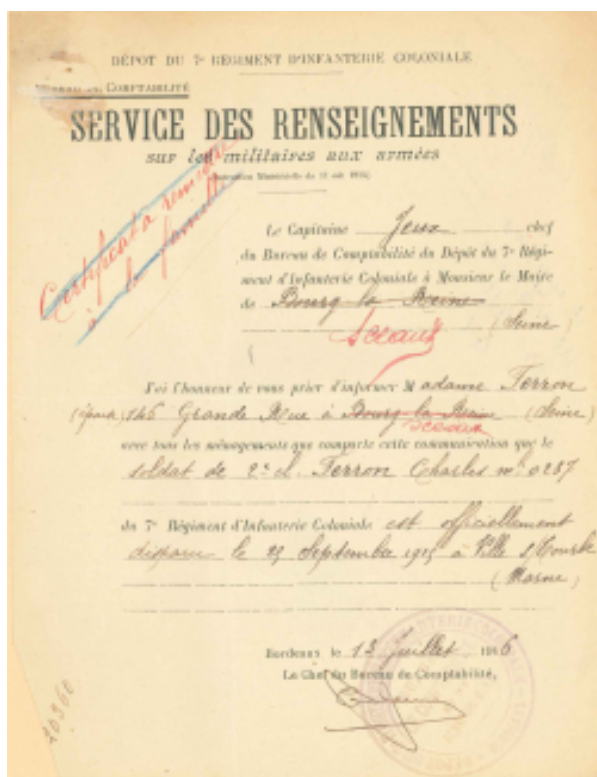 DÉPOT DU 7e RÉGIMENT D'INFANTERIE COLONIALE
BUREAU DE COMPTABILITÉ
SERVICE DES RENSEIGNEMENTS
sur les militaires aux armées
Certificat à remettre
à la famille
Le Capitaine Jeux chef
du Bureau de Comptabilité du Dépôt du 7e Régi-
ment d'Infanterie Coloniale à Monsieur le Maire
de Bourg la Reine
Sceaux (Seine)
J'ai l'honneur de vous prier d'informer Madame Ferron
146 Grande Rue à Bourg la Reine (Seine)
Sceaux
avec tous les ménagements que comporte cette communication que le
soldat de 2e cl. Ferron Charles mle 0287
du 7e Régiment d'Infanterie Coloniale est officiellement
disparu le 29 Septembre 1915 à Ville s/Tourbe
(Marne)
Bordeaux le 13 Juillet 1916
Le Chef du Bureau de Comptabilité,